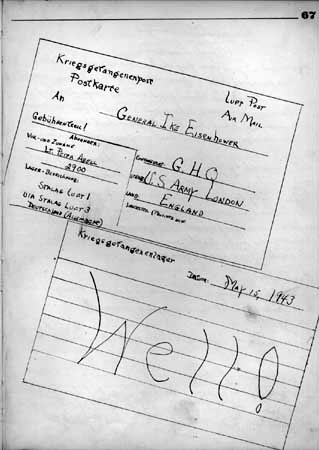 67
Kriegsgefangenenpost
Postkarte
Luft Post
Air Mail
An
General Ike Eisenhower
Gebührenfrei!
Absender:
Vor- und Zuname
Lt. Peter Abell
2900
Lager-Bezeichnung:
Stalag Luft 1
Via Stalag Luft 3
Deutschland (Allemagne)
G.H.Q
U.S Army London
England
Kriegsgefangenenlager
Datum: May 15, 1943
Well!